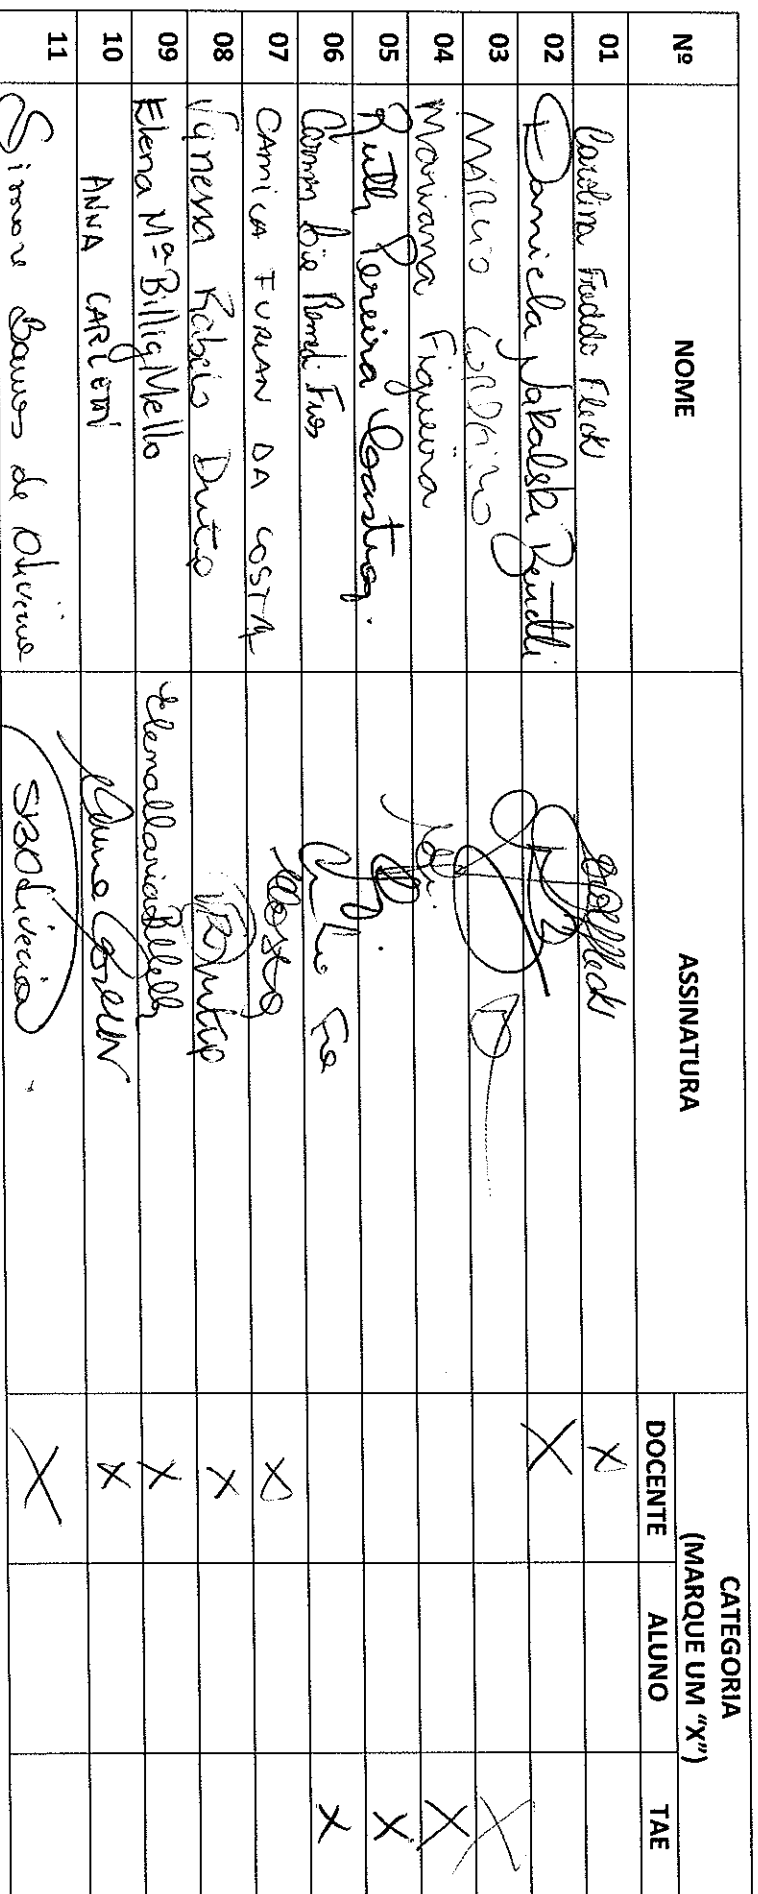 Nº NOME ASSINATURA CATEGORIA (MARQUE UM “X”)
DOCENTE ALUNO TAE
01 Carolina Freddo Fleck X
02 Daniela Jakalski Benetti X
03 MÁRCIO CORDEIRO X
04 Mariana Figueira X
05 Ruth Pereira X
06 X
07 CAMILA FURIAN DA COSTA Costa X
08 Vanessa Rabelo Dutra VRDutra X
09 Elena Mª Billig Mello X
10 ANNA CARLETTI X
11 Simone Barros de Oliveira SBOliveira X